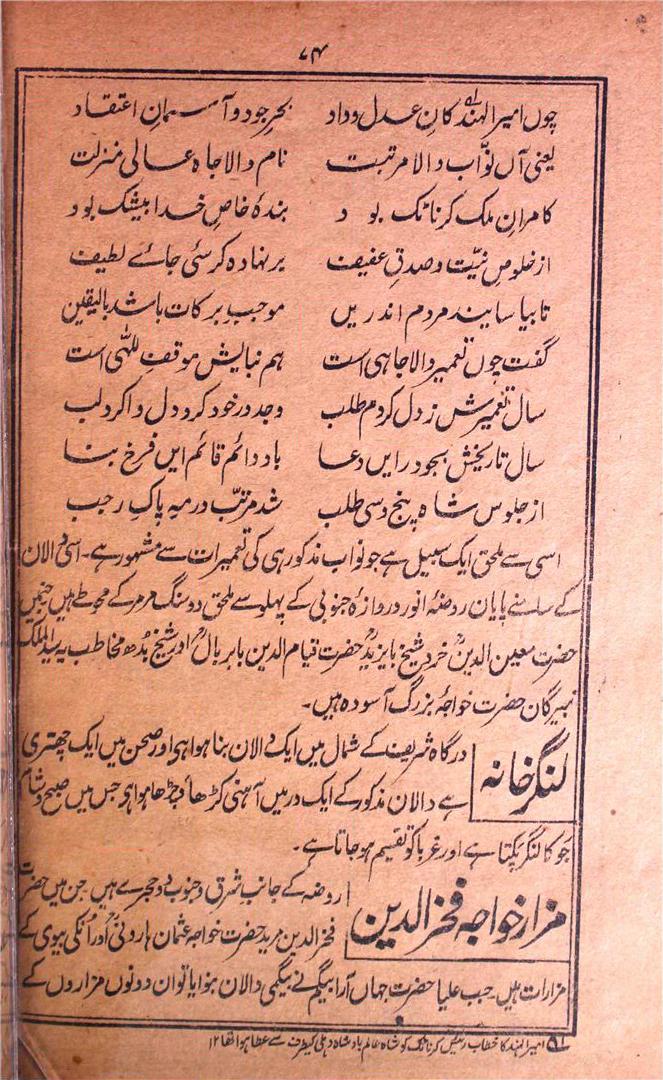 ۷۴
چوں امیر الہند کانِ عدل و داد بحرِ جود و آسمانِ اعتقاد
یعنی آں نوّاب والا مرتبت نام والا جاہ عالی منزلت
کامرانِ ملک کرناٹک بود بندۂ خاصِ خدا بیشک بود
از خلوصِ نیّت و صدقِ عفیف بر نہادہ کرسئی جائے لطیف
تا بیاسایند مردم اندریں موجبِ برکات باشد بالیقین
گفت چوں تعمیر والا جاہی است ہم نبایش موقفِ للّٰہی است
سال تعمیرش ز دل کردم طلب وجد در خود کرد دل وا کرد لب
سال تاریخش بجود رایں دعا باد دائم قائم ایں فرخ بنا
از جلوس شاہ پنج و سی طلب شد مرتّب در مہ پاکِ رجب
اسی سے ملحق ایک سبیل ہے جو نواب مذکور ہی کی تعمیرات سے مشہور ہے۔ اسی دالان
کے سامنے پایان روضۂ انور دروازۂ جنوبی کے پہلو سے ملحق دو سنگ مرمر کے محوطے ہیں جنمیں
حضرت معین الدینؒ خرد شیخ بایزیدؒ حضرت قیام الدین بابربالؒ اور شیخ بُدھ مخاطب بہ سید الملک
نبیرگان حضرت خواجۂ بزرگ آسودہ ہیں۔
لنگر خانہ
درگاہ شریف کے شمال میں ایک دالان بنا ہوا ہی اور صحن میں ایک چھتری
ہے دالان مذکور کے ایک در میں آہنی کڑھاؤ چڑھا ہوا ہی جس میں صبح و شام
جَو کا لنگر پکتا ہے اور غربا کو تقسیم ہو جاتا ہے۔
مزار خواجہ فخر الدین
روضہ کے جانب شرق و جنوب دو حجرے ہیں جن میں حضرت
فخر الدین مرید حضرت خواجہ عثمان ہارونیؒ اور اُنکی بیوی کے
مزارات ہیں۔ جب علیا حضرت جہاں آرا بیگم نے بیگمی دالان بنوایا تو ان دونوں مزاروں کے
امیر الہند کا خطاب رئیس کرناٹک کو شاہ عالم بادشاہ دہلی کیطرف سے عطا ہوا تھا ۱۲